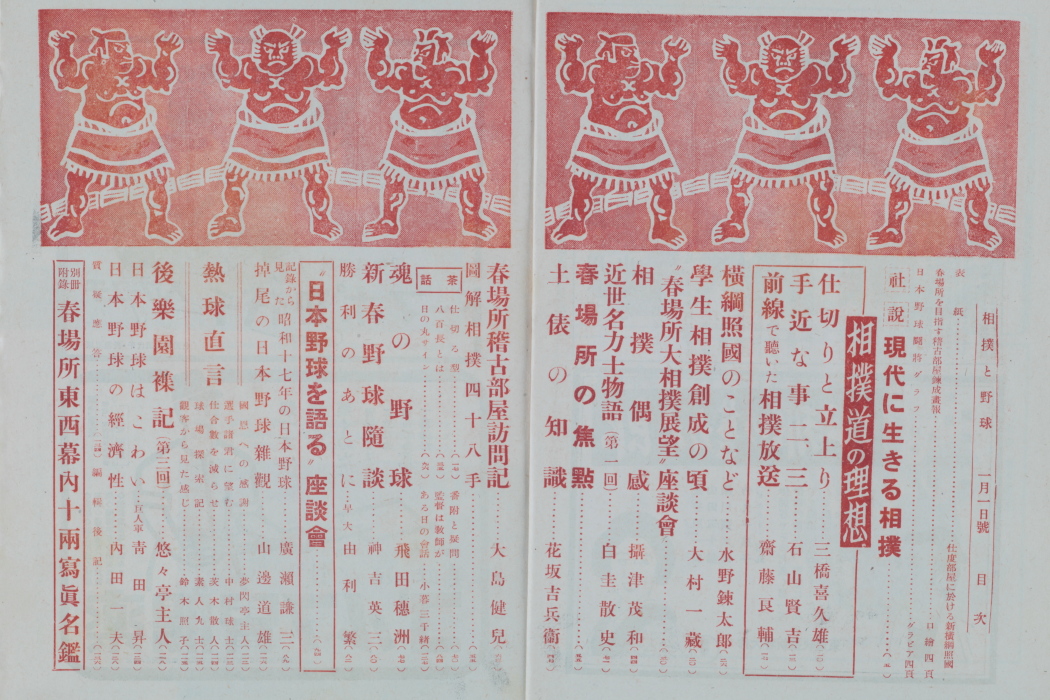 相撲と野球 一月一日號 目次
表紙
春場所を目指す稽古部屋錬成畫報 口繪四頁
日本野球鬪將グラフ グラビア四頁
社說 現代に生きる相撲
相撲道の理想
仕切りと立上り 三橋喜久雄
手近な事二、三 石山賢吉
前線で聽いた相撲放送 齋藤良輔
橫綱照國のことなど 水野錬太郎
學生相撲創成の頃 大村一藏
〝春場所大相撲展望〟座談會
近世名力士物語(第一回) 白圭散史
相撲偶感 攝津茂和
春場所の焦點
土俵の知識 花坂吉兵衞
春場所稽古部屋訪問記 大島健兒
圖解相撲四十八手
茶話
仕切る型
番附と疑問
八百長とは
監督は敎師が
日の丸サイン
ある日の會話 小暮三千緖
魂の野球 飛田穗洲
新春野球隨談 神吉英三
勝利のあとに 早大 由利繁
〝日本野球を語る〟座談會
記錄から見た 昭和十七年の日本野球 廣瀨謙三
掉尾の日本野球雜觀 山邊道雄
熱球直言
國恩への感謝 夢閑亭主人
選手諸君に望む 中村球士
仕合數を減らせ 茨木散人
球場探密記 素人九士
觀客から見た感じ 鈴木照子
後樂園襍記(第三回) 悠々亭主人
日本野球はこわい 巨人軍 靑田昇
日本野球の經濟性 內田一夫
質疑應答
編輯後記
別冊附錄 春場所東西幕內十兩寫眞名鑑